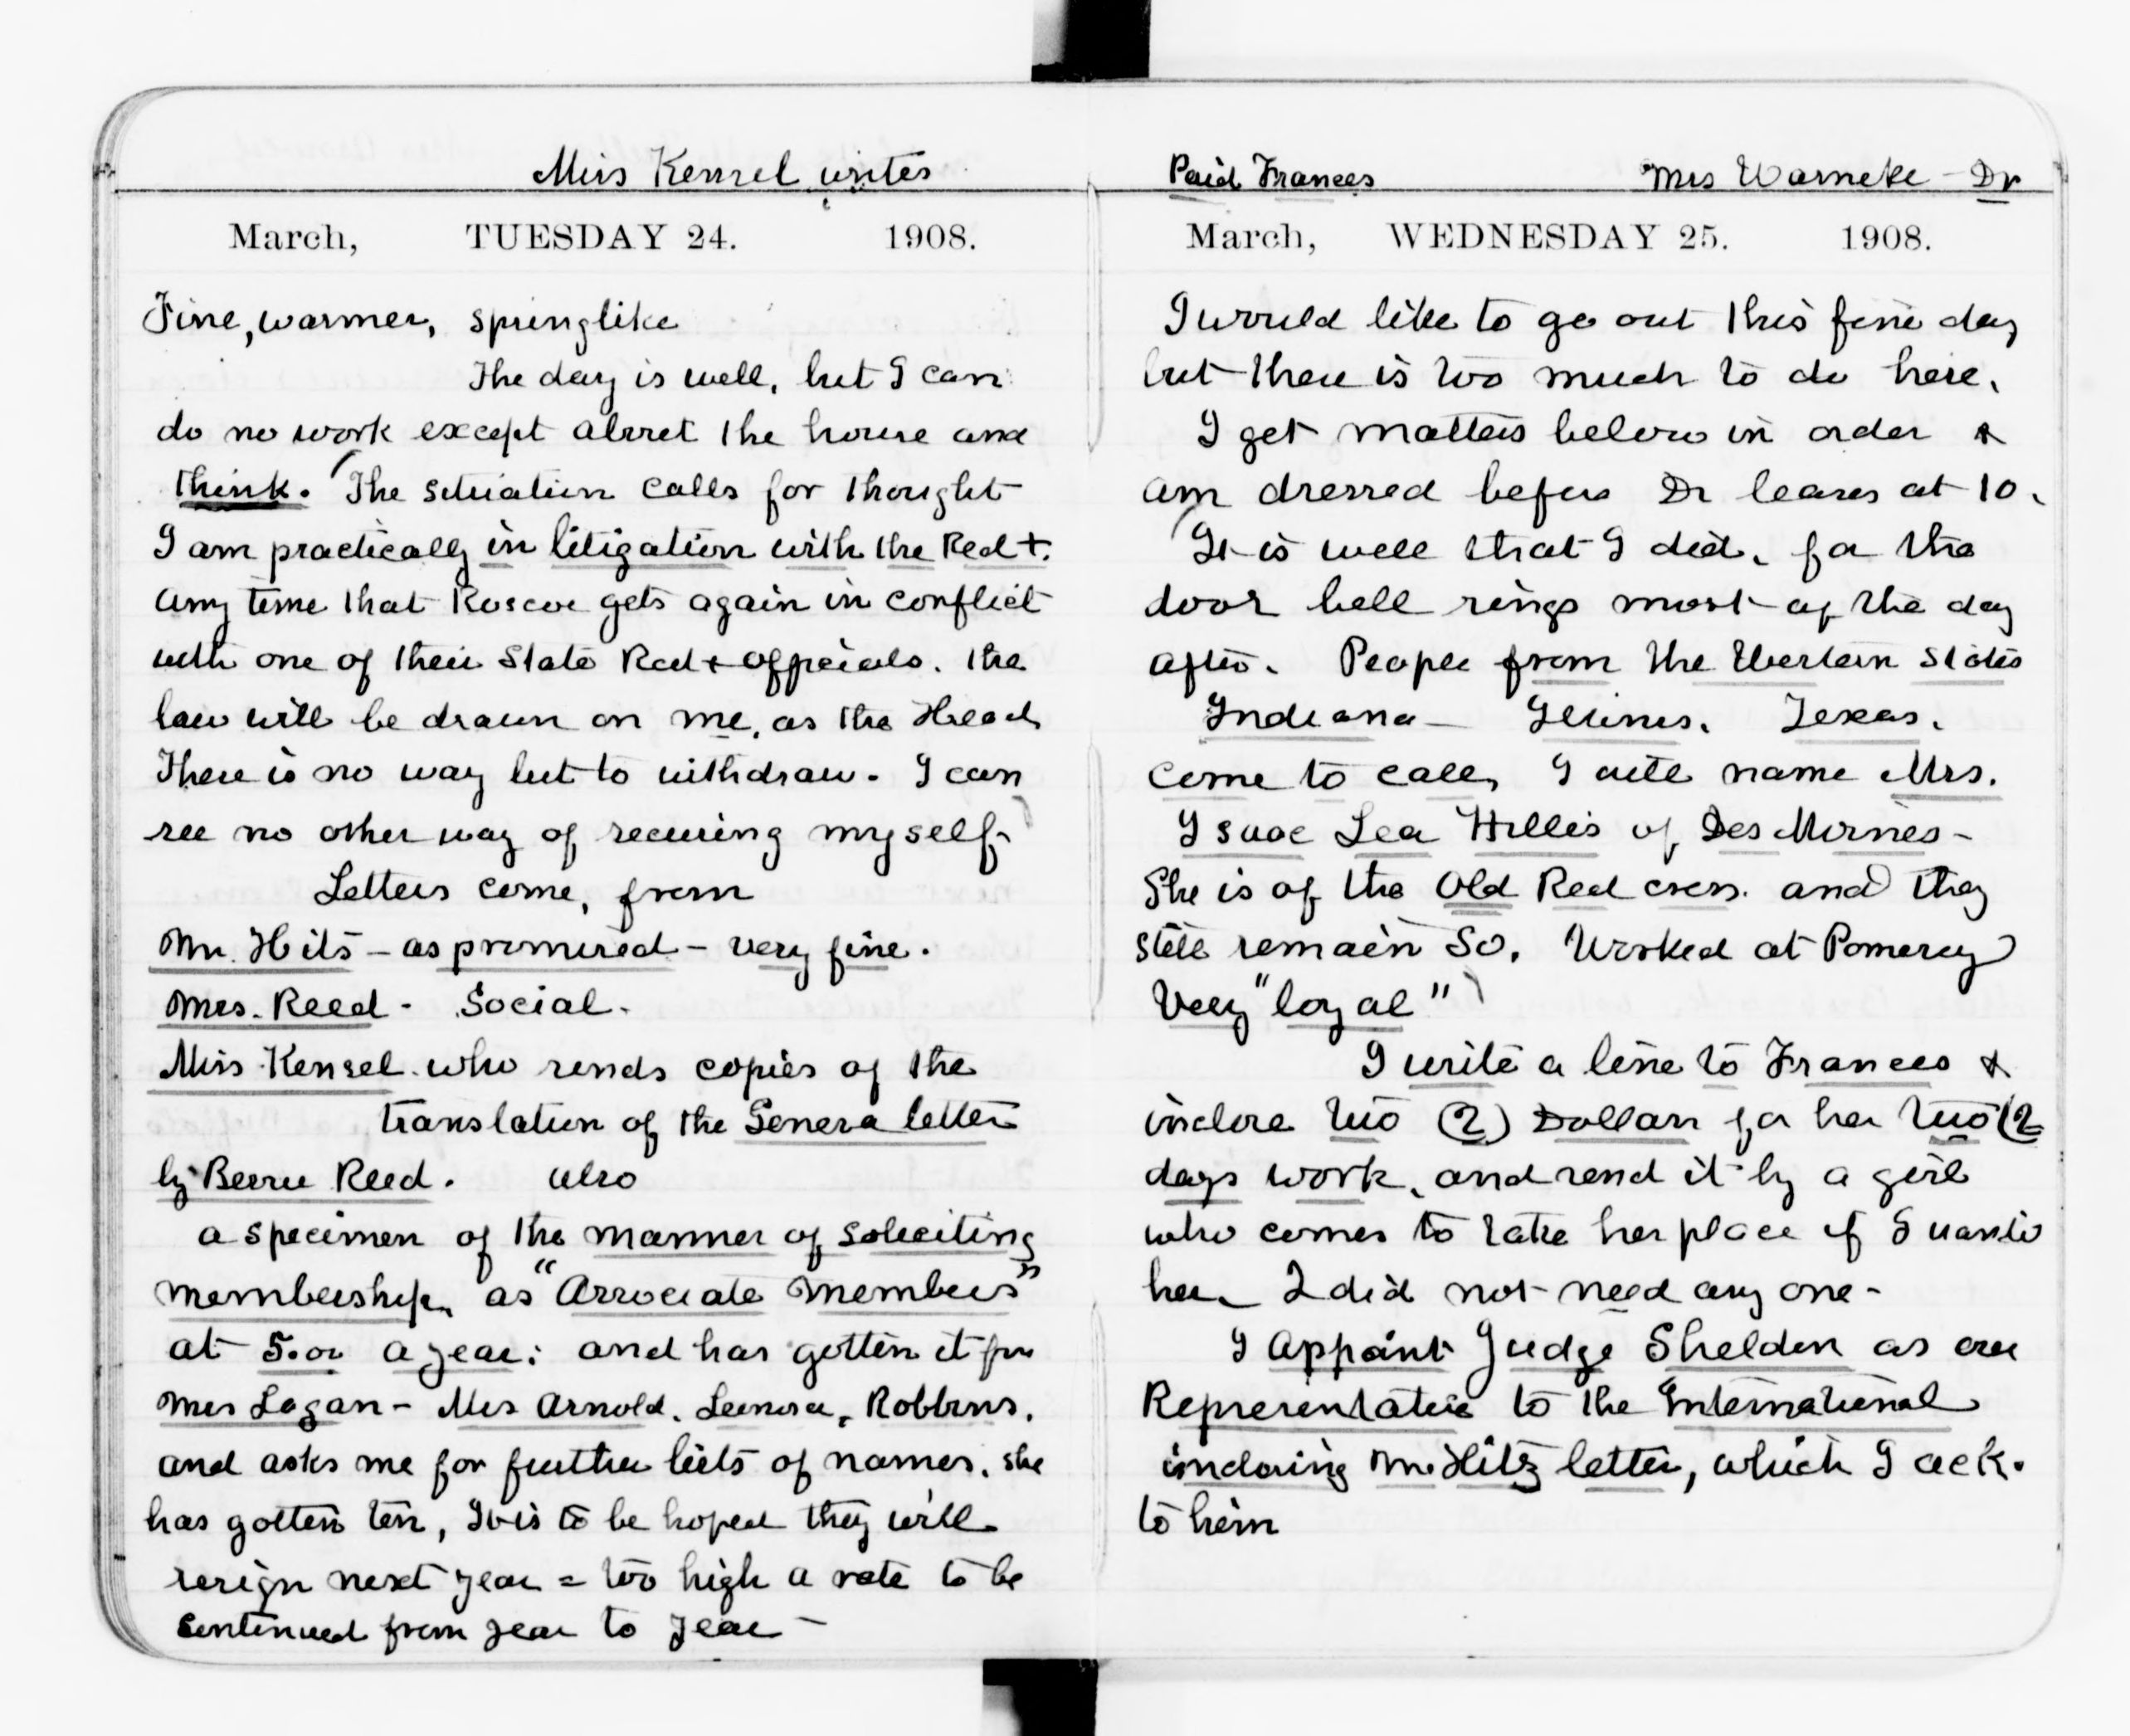 Miss Kensel writes
March, TUESDAY 24. 1908.
Fine, warmer, springlike
The day is well, but I can
do no work except about the house and
think. The situation calls for thought
I am practically in litigation with the Red +.
Any time that Roscoe gets again in conflict
with one of their State Red + officials. the
law will be drawn on me, as the Head
There is no way but to withdraw. I can
see no other way of securing myself.
Letters come, from
Mr. Hits - as promised - very fine.
Mrs. Reed - Social -
Miss Kensel who sends copies of the
translation of the Geneva letter
by Bessie Reed. also
a specimen of the manner of soliciting
membership, as "Associate Members"
at 5.00 a year: and has gotten it for
Mrs Logan - Mrs Arnold, Leonora, Robbins,
and asks me for further lists of names. she
has gotten ten, It is to be hoped they will
resign next year = too high a rate to be
continued from year to year -
Paid Frances Mrs Warneke - Dr
March, WEDNESDAY 25. 1908.
I would like to go out this fine day
but there is too much to do here.
I get matters below in order &
am dressed before Dr leaves at 10.
It is well that I did, for the
door bell rings most of the day
after. People from the Western States
Indiana - Illinois. Texas.
come to call, I will name Mrs.
Isaac Lea Hillis of Des Moines -
She is of the Old Red cross. and they
still remain so. Worked at Pomeroy
Very "loyal"
I write a line to Frances &
inclose two (2) Dollars for her two (2
days work, and send it by a girl
who comes to take her place if I want
her. I did not need any one -
I appoint Judge Sheldon as our
Representative to the International
inclosing Mr Hitz letter, which I ack.
to him